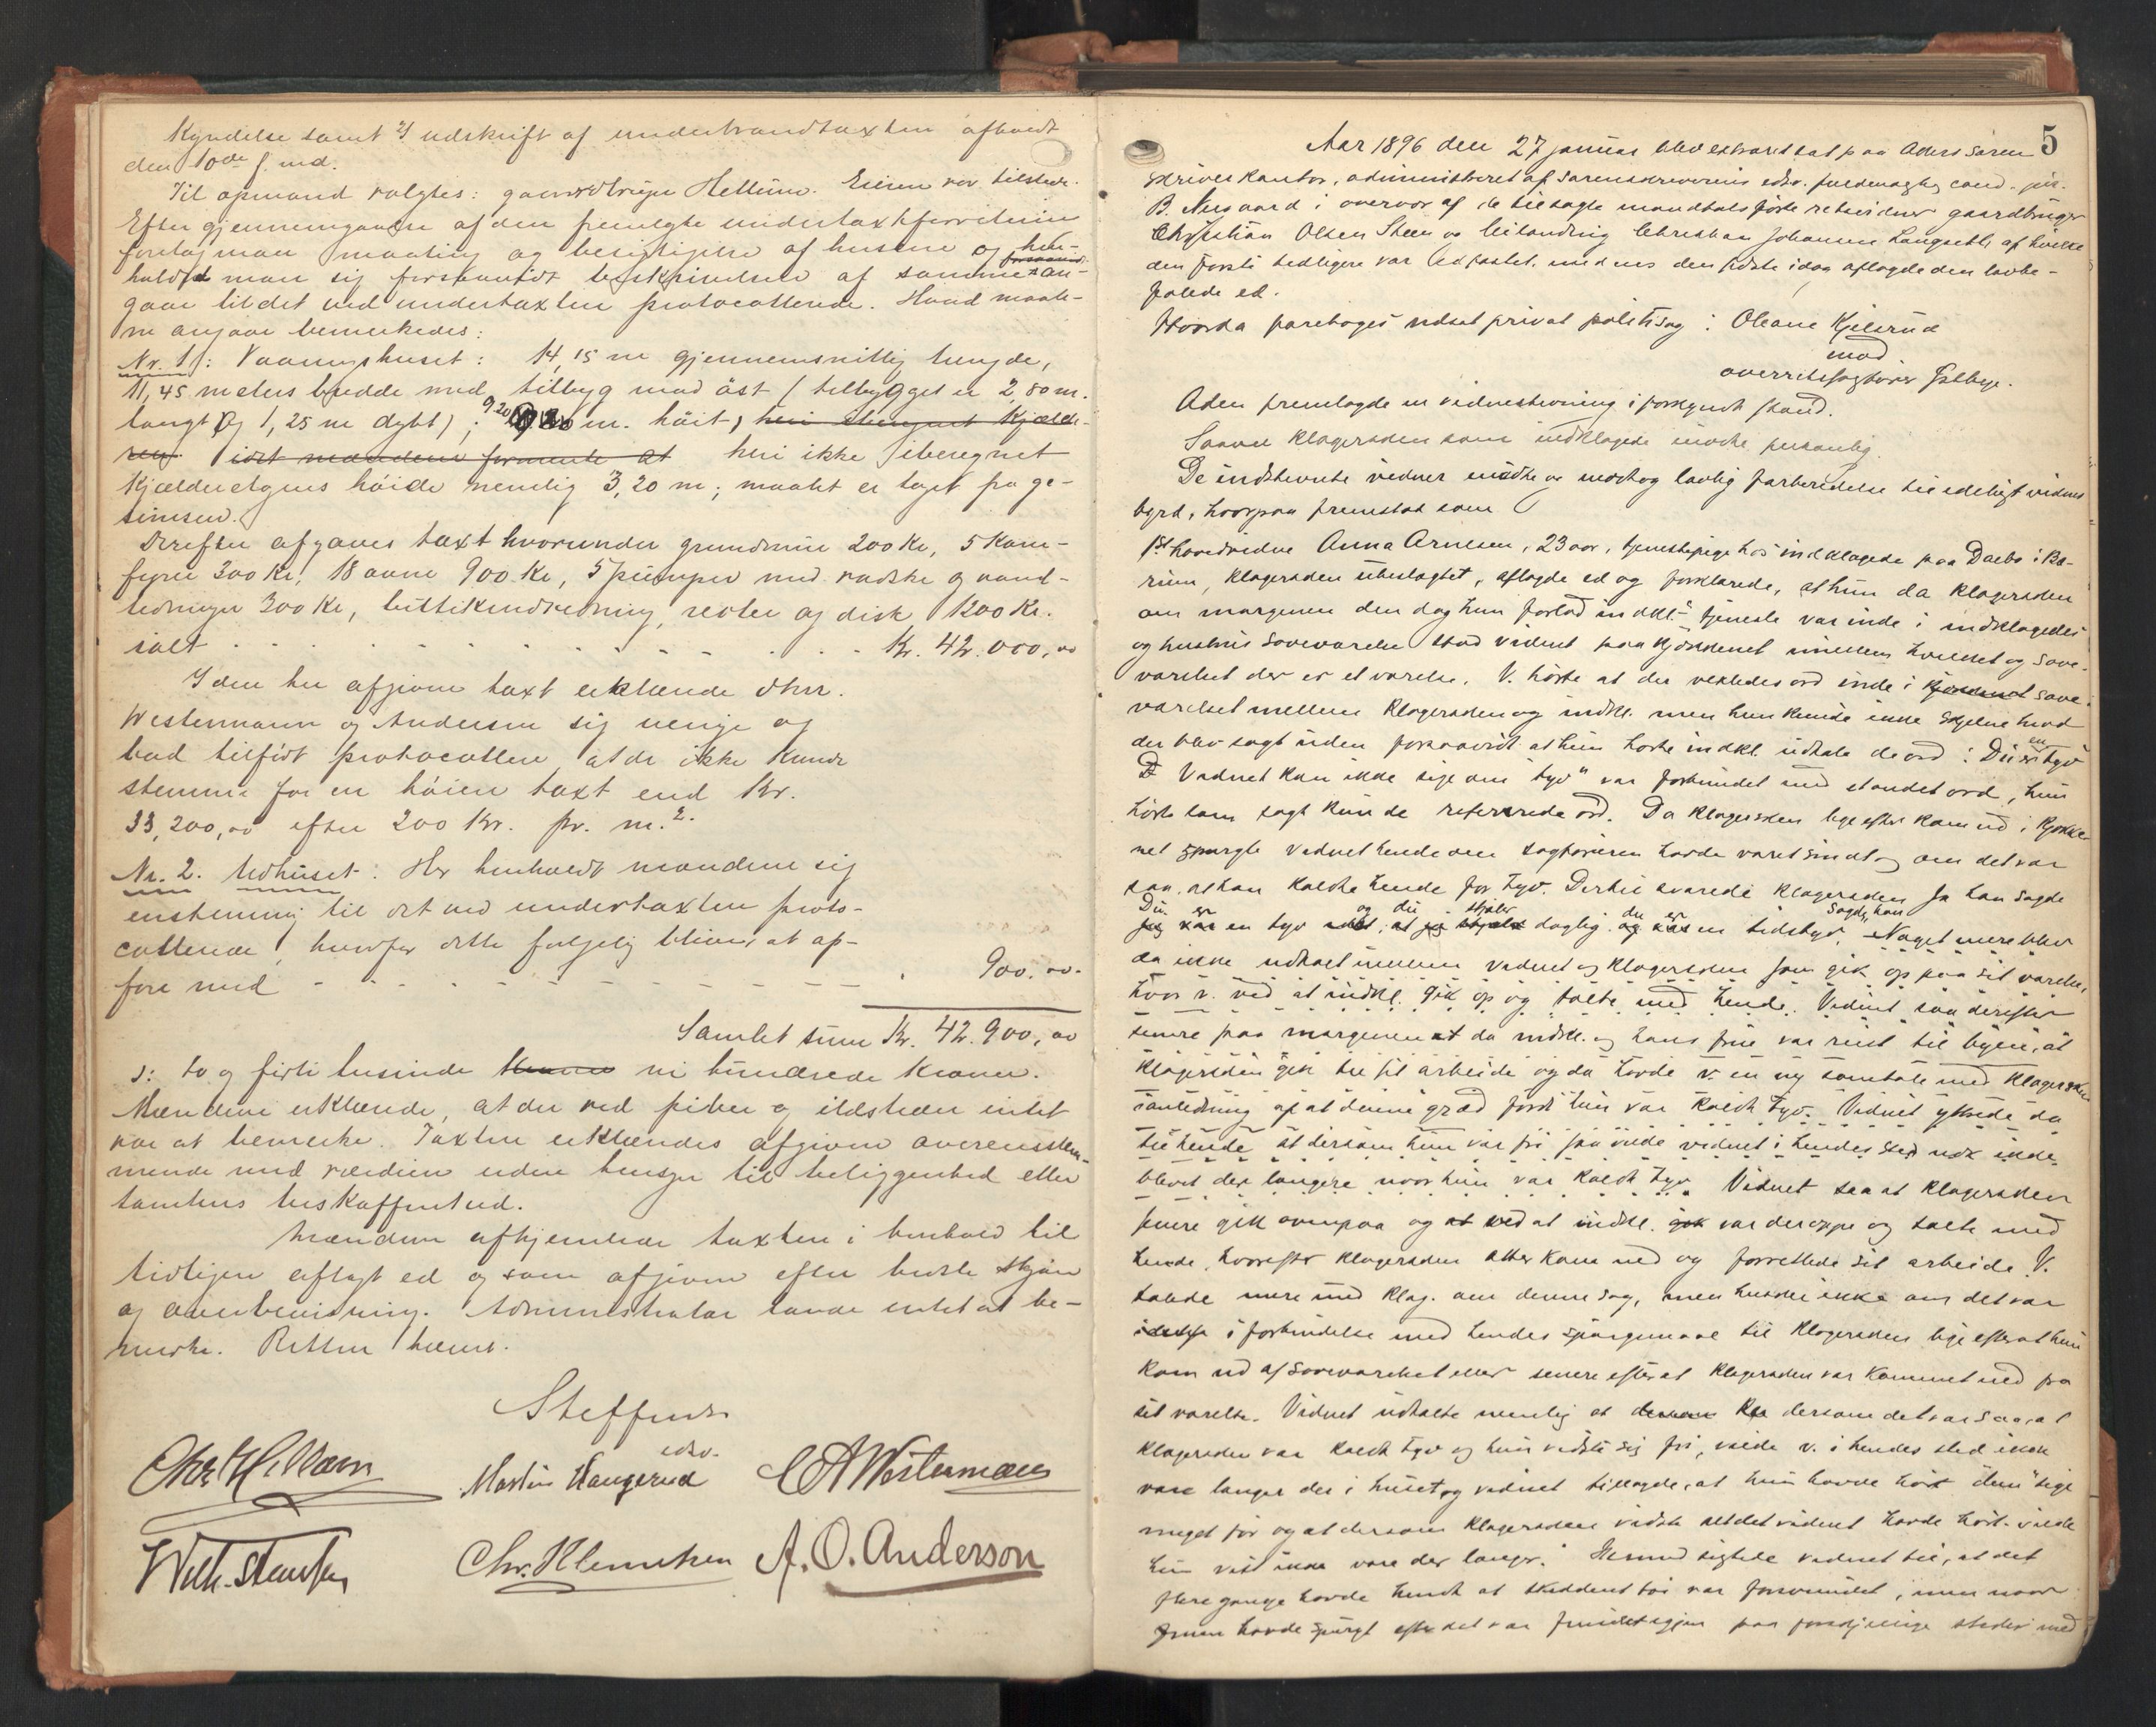 Kyndelse samt 2/ udskrift af underbrandtaxten afholdt
den 10de f. md.
Til opmand valgtes: gaardbruger Hellum. Eieren var tilstede.
Efter gjennemgaaelse af den fremlagte undertaxtforretning
foretog man maaling og besigtigelse af husene og hen-
holdt man sig forsaavidt beskrivelsen af samme an-
gaar til det ved undertaxten protocollerede. Hvad maale-
ne angaar bemerkedes:
Nr. 1: Vaaningshuset: 14,15 m gjennemsnitlig længde,
11,45 meters bredde med tilbyg mod øst (tilbygget er 2,80 m.
langt og 1,25 m dybt); 9,20 m. høit, heri iberegnet Kjælde-
ren idet mændene formente at heri ikke iberegnet
Kjælderetagens høide nemlig 3,20 m; maalet er taget fra ge-
simsen.
Derefter afgaves taxt hvorunder grundmur 200 Kr, 5 Kom-
fyrer 300 Kr, 18 ovne 900 Kr, 5 pumper med vadske og vand-
ledninger 300 Kr, buttikindredning, reoler og disk 1200 Kr.
ialt - - - - - - Kr. 42.000,00
I den her afgivne taxt erklærede dhrr.
Westermann og Andersen sig uenige og
bad tilført protocollen at de ikke kunde
stemme for en høiere taxt end Kr.
33,200,00 efter 200 Kr. pr. m.2
Nr. 2. Udhuset: Her henholdt mændene sig
enstemmig til det ved undertaxten proto-
collerede, hvorfor dette følgelig bliver at op-
føre med - - - - - - 900.00.
Samlet sum Kr. 42.900,00
ɔ: to og firti tusinde Kroner ni hundrede Kroner.
Mændene erklærede, at der ved piber og ildsteder intet
var at bemerke. Taxten erklæredes afgiven overensstem-
mende med værdien uden hensyn til beliggenhed eller
tomtens beskaffenhed.
Mændene afhjemlede taxten i henhold til
tidligere aflagt ed og som afgiven efter bedste skjøn
og overbevisning. Administrator havde intet at be-
merke. Retten hævet.
Steffens
edsv.
Chr. Hellum Martin Haugerud C A Westermann
Wilh. Steufsen Chr. Klemetsen A. O. Anderson
5
Aar 1896 den 27 januar blev extraret sat paa Akers soren
skriverkontor, administreret af sorenskriverens edsv. fuldmægtig cand. jur.
B. Nergaard i overvær af de tilsagte mandtalsførte retsvidner gaardbruger
Christian Olsen Steen og Christian Johansen Langseth, af hvilke
den første tidligere var edfæstet, medens den sidste idag aflagde den lovbe-
falede ed.
Hvorda foretoges udsat privat politisag: Oleane Kjelsrud
mod
overretssagfører Falbye.
Aden fremlagde en vidnestevning i forkyndt stand.
Saavel klagersken som indklagede mødte personlig.
De indstevnte vidner mødte og modtog lovlig forberedelse til edeligt vidnes
byrd, hvorpaa fremstod som
1st hovedvidne Anna Arnesen, 23 aar, tjenestepige hos indklagede paa Dæli i Bæ-
rum, klagersken ubeslægtet, aflagde ed og forklarede, at hun da klagersken
om morgenen den dag hun forlod indkl.s tjeneste var inde i indklagedes
og hustrus soveværelse stod vidnet paa kjøkkenet imellem hvilket og sove-
værelset der er et værelse. V. hørte at der vexledes ord inde i kjøkkenet sove-
værelset mellem klagersken og indkl. men hun kunde ikke skjelne hvad
der blev sagt uden forsaavidt at hun hørte indkl. udtale de ord: Du er en tyv
D Vidnet kan ikke sige om "tyv" var forbundet med et andet ord, hun
hørte som sagt kun de refererede ord. Da klagersken lige efter kom ud i kjøkke
net spurgte vidnet hende om sagføreren havde været sindt og om det var
saa at han kaldte hende for tyv. Dertil svarede klagersken Ja han sagde
Du er og du stjæler du er sagde han
jeg var en tyv at jeg stjæler daglig og var en tidstyv. Noget mere blev
da ikke udtalt imellem vidnet og klagersken som gik op paa sit værelse,
hvor v. ved at indkl. gik op og talte med hende. Vidnet saa derefter
senere paa morgenen at da indkl. og hans frue var reist til byen, at
klagersken gik til sit arbeide og da havde v. en ny samtale med klagersken
i anledning af at denne græd fordi hun var kaldt tyv. Vidnet ytrede da
til hende at dersom hun var fri saa vilde vidnet i hendes sted ikke
blevet der længere naar hun var kaldt tyv. Vidnet saa at klagersken
senere gik ovenpaa og at ved at indkl. gik var deroppe og talte med
hende, hvorefter klagersken atter kom ned og forrettede sit arbeide. V.
talede mere med klag. om denne sag, men husker ikke om det var
i forbindelse med hendes spørgsmaal til klagersken lige efter at hun
kom ud af soveværelset eller senere efter at klagersken var kommet ned fra
sit værelse. Vidnet udtalte nemlig at dersom det var saa, at
klagersken var kaldt tyv og hun vidste sig fri, vilde v. i hendes sted ikke
være længer der i huset, og vidnet tillagde, at hun havde hørt "dem" sige
meget før og at dersom klagersken vidste alt det vidnet havde hørt vilde
hun vist ikke være der længer. Hermed sigtede vidnet til, at det
flere gange havde hendt at skiddent tøi var forsvundet, men naar
fruen havde spurgt efter det var fundet igjen paa forskjellige steder med